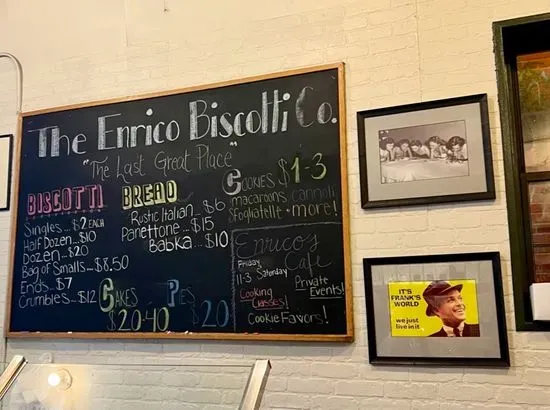 The Enrico Biscotti Co.
"The Last Great Place"
BISCOTTI
Singles... $2 EACH
Half Dozen... $10
Dozen... $20
Bag of Smalls... $8.50
Ends... $7
Crumbles... $12
BREAD
Rustic Italian... $6
Panettone... $15
Babka... $10
COOKIES $1-3
macaroons cannoli
sfogliatelle + more!
CAKES
$20-40
PIES
$20
Enrico's
Cafe
Friday
11-3 Saturday
Cooking
Classes!
Private
Events!
Cookie Favors!
IT'S
FRANK'S
WORLD
we just
live in it